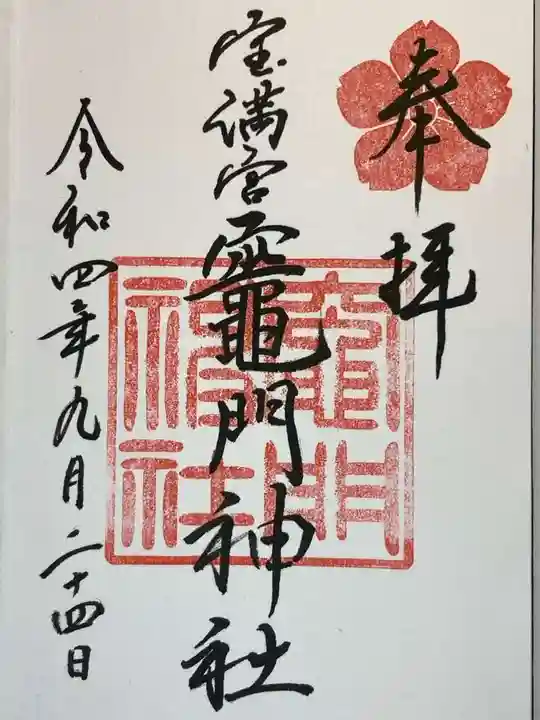 奉拝
宝満宮竈門神社
竈門神社
令和四年九月二十四日